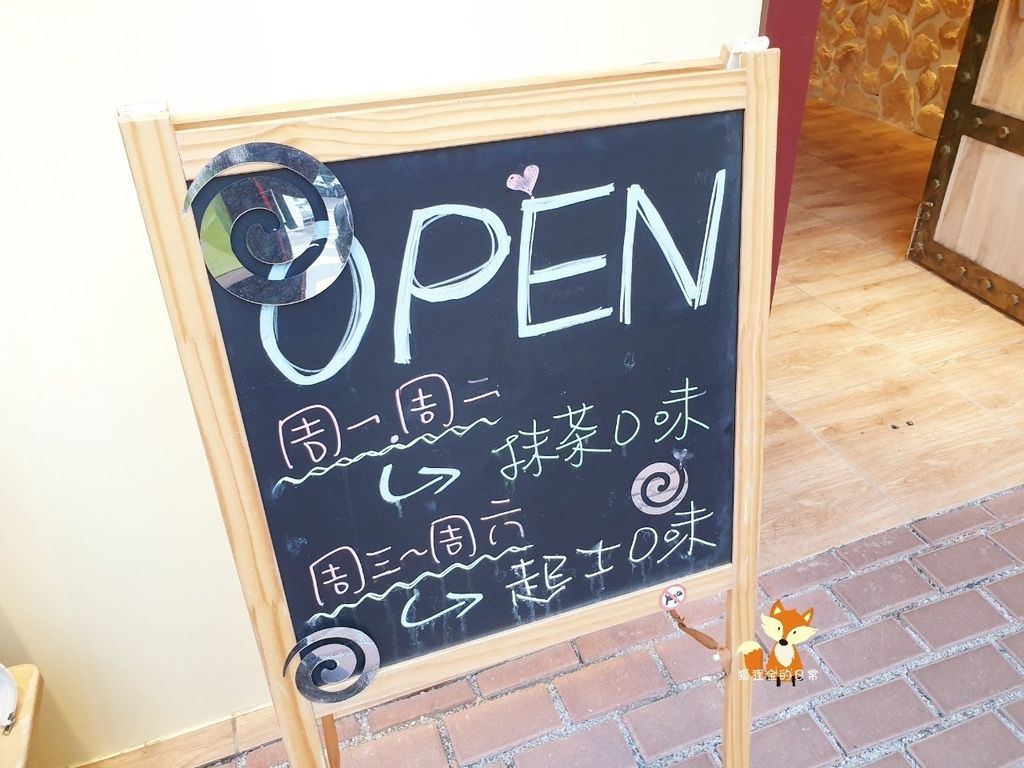 OPEN
周一.周二
抹茶口味
周三~周六
起士口味
狐狸金的日常